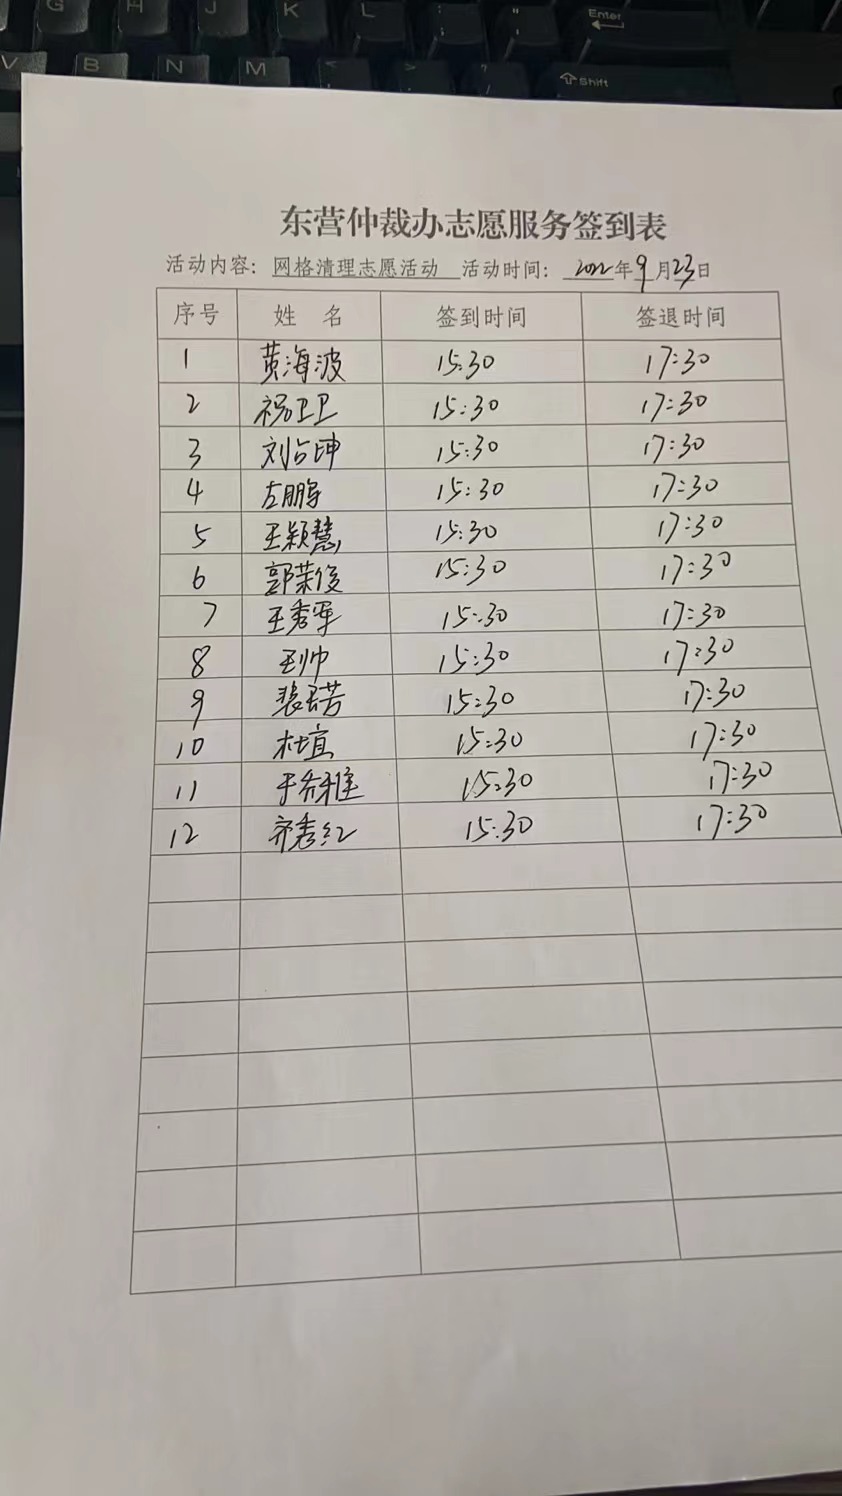 G H J K L : " Enter
V B N M < > ? Shift
东营仲裁办志愿服务签到表
活动内容：网格清理志愿活动 活动时间：2022年9月23日
序号 姓 名 签到时间 签退时间
1 黄海波 15:30 17:30
2 祝卫卫 15:30 17:30
3 刘占坤 15:30 17:30
4 左鹏 15:30 17:30
5 王颖慧 15:30 17:30
6 郭荣俊 15:30 17:30
7 王秀军 15:30 17:30
8 王帅 15:30 17:30
9 15:30 17:30
10 杜宜 15:30 17:30
11 15:30 17:30
12 齐秀红 15:30 17:30